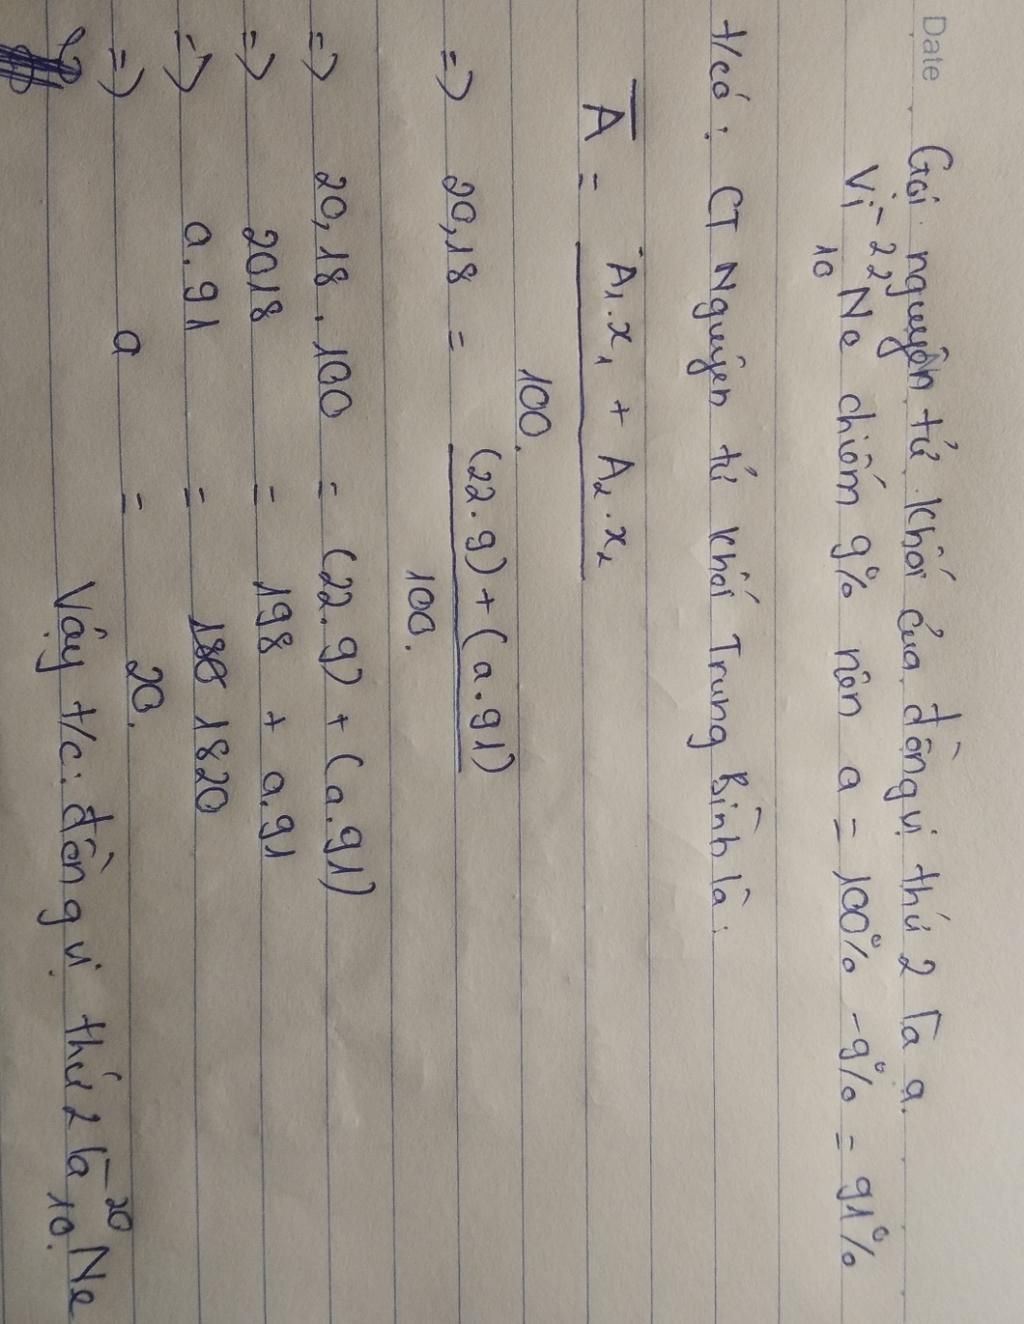 Date
Gọi nguyên tử khối của đồng vị thứ 2 là a.
Vì ²²₁₀Ne chiếm 9% nên a = 100% - 9% = 91%
t/có: CT Nguyên tử khối Trung Bình là:
A̅ = A₁.x₁ + A₂.x₂
100.
=> 20,18 = (22.9) + (a.91)
100.
=> 20,18.100 = (22.9) + (a.91)
=> 2018 = 198 + a.91
=> a.91 = 1820
=> a = 20.
Vậy t/c: đồng vị thứ 2 là ²⁰₁₀Ne